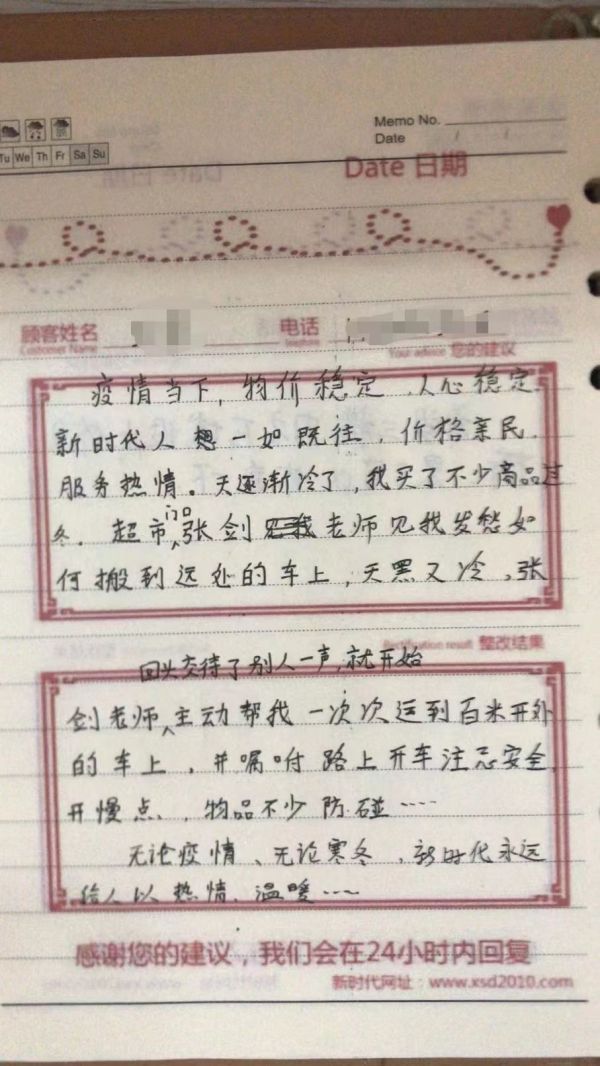 Memo No.
Date / /
Tu We Th Fr Sa Su
Date 日期
顾客姓名 电话
Customer Name
Your advice 您的建议
疫情当下，物价稳定，人心稳定，
新时代人想一如既往，价格亲民，
服务热情。天逐渐冷了，我买了不少商品过
冬。超市门口张剑老师见我发愁如
何搬到远处的车上，天黑又冷，张
Rectification result 整改结果
回头交待了别人一声，就开始
剑老师主动帮我一次次运到百米开外
的车上，并嘱咐路上开车注意安全，
开慢点，物品不少防碰……
无论疫情、无论寒冬，新时代永远
给人以热情、温暖……
感谢您的建议，我们会在24小时内回复
新时代网址：www.xsd2010.com